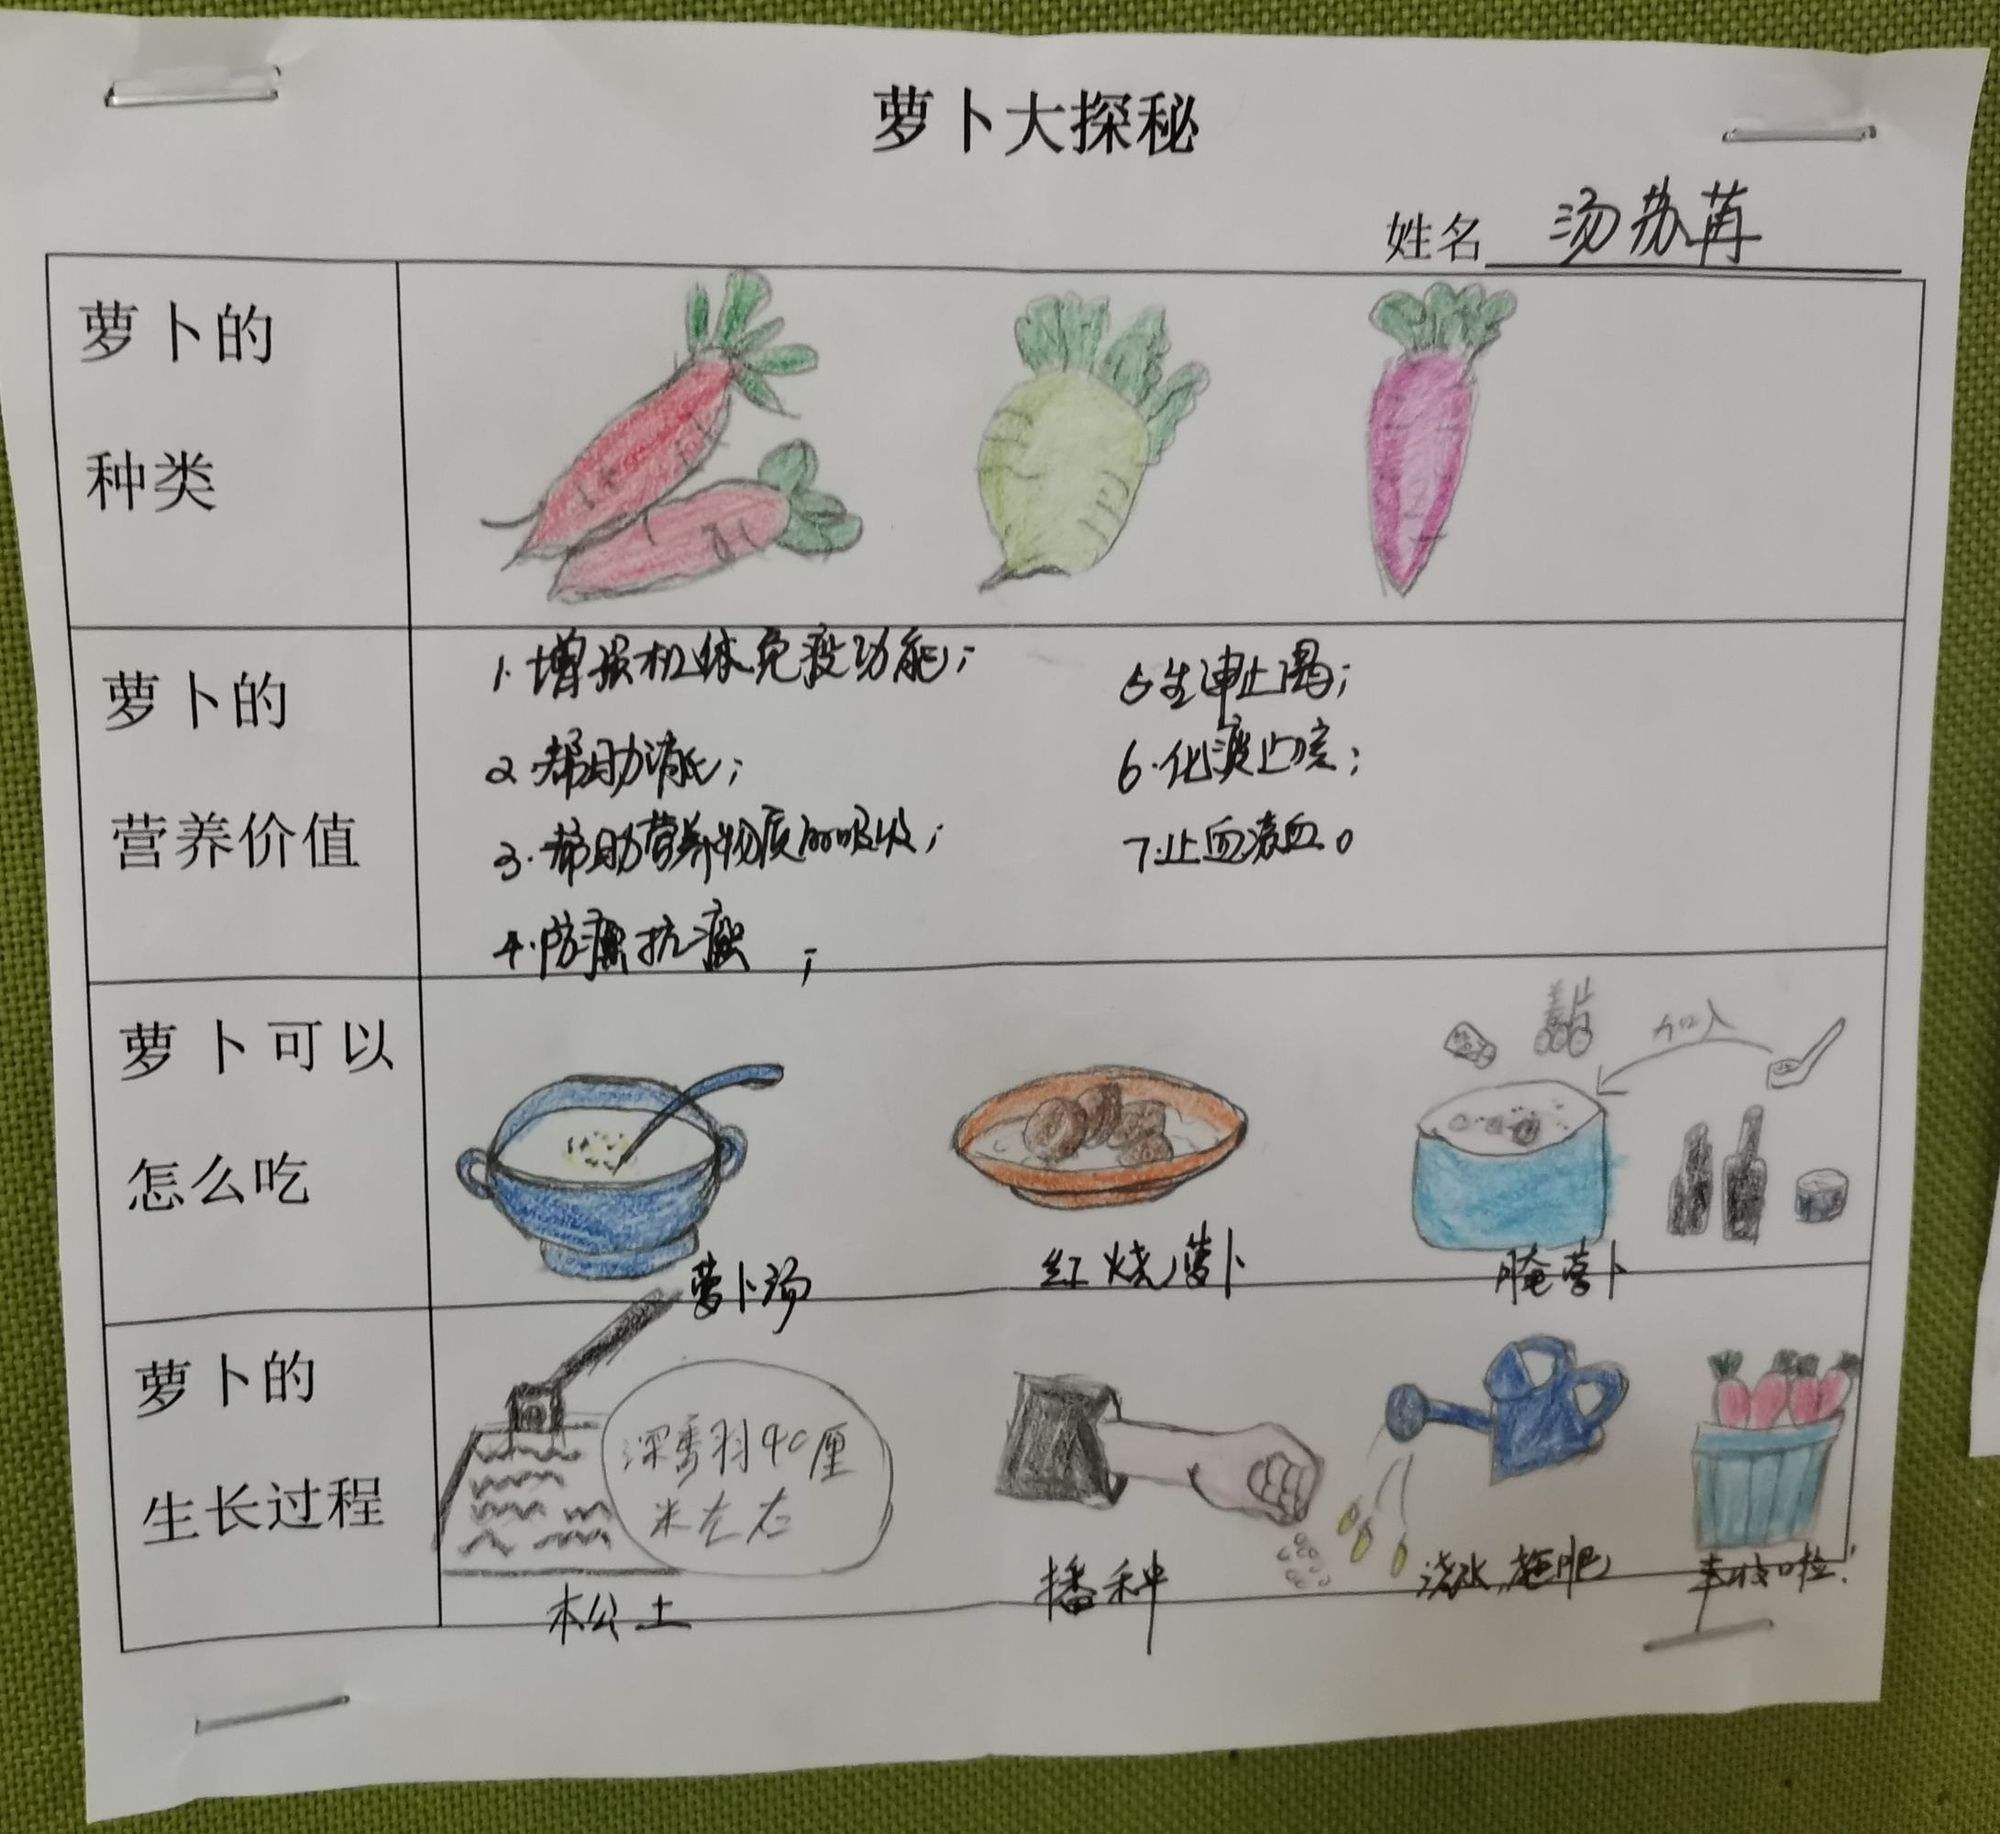 萝卜大探秘
姓名 汤苏苒
萝卜的
种类
萝卜的
营养价值
1.增强机体免疫功能;
2.帮助消化;
3.帮助营养物质的吸收;
4.防癌抗癌;
5生津止渴;
6.化痰止咳;
7.止血凉血。
萝卜可以
怎么吃
萝卜汤
红烧萝卜
加入
腌萝卜
萝卜的
生长过程
40厘
米左右
松土
播种
浇水,施肥
丰收啦!